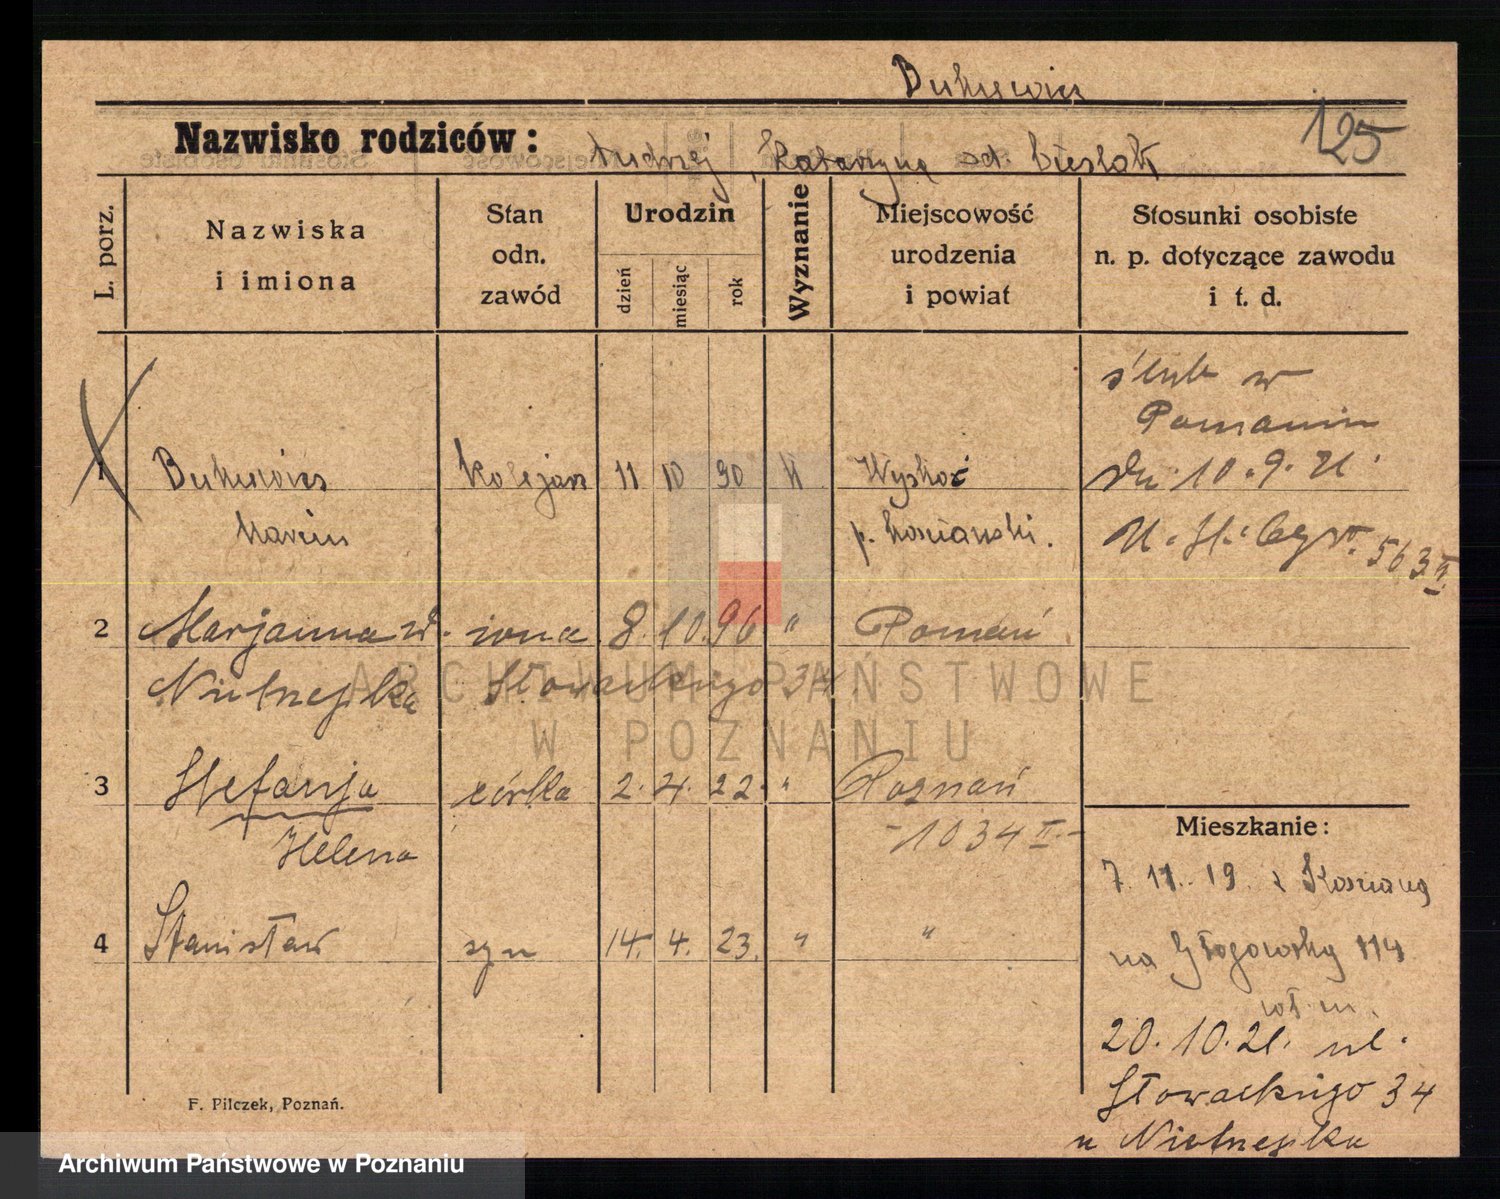 Bukiewicz
125
Nazwisko rodziców: Andrzej, Katarzyna zd. Cieślak
L. porz.
Nazwiska i imiona
Stan odn. zawód
Urodzin
dzień
miesiąc
rok
Wyznanie
Miejscowość urodzenia i powiat
Stosunki osobiste n. p. dotyczące zawodu i t. d.
ślub w
Poznaniu
dn. 10.9.21.
563 II.
1 Bukiewicz kolejarz 11 10 90 K Wyskoć
Marcin p. kościański.
2 Marjanna w. żona 8. 10. 96 " Poznań
Nietrzepka Słowackiego 34
3 Stefanja córka 2. 4. 22. " Poznań
Helena -1034 II.-
4 Stanisław syn 14. 4. 23. " "
Mieszkanie:
7. 11. 19. z Kościana
na Głogowską 114
wł. m.
20. 10. 21. ul.
Słowackiego 34
u Nietrzepka
F. Pilczek, Poznań.
ARCHIWUM PAŃSTWOWE
W POZNANIU
Archiwum Państwowe w Poznaniu